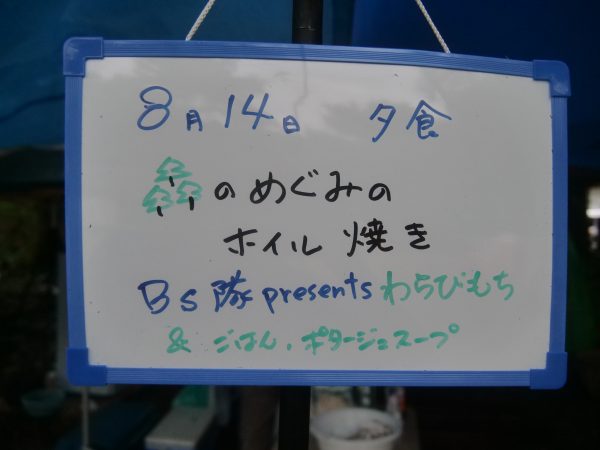 8月14日 夕食
森のめぐみの
ホイル焼き
BS隊 presents わらびもち
& ごはん、ポタージュスープ